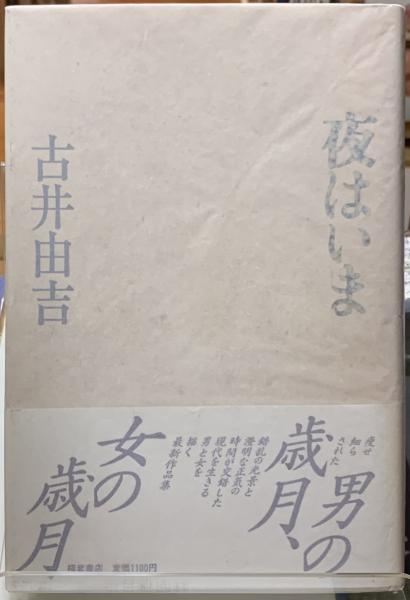 夜はいま
古井由吉
痩せ
細ら
された
男の
歳月、
錯乱の光景と
澄明な正気の
時間が交錯した
現代を生きる
男と女を
描く
最新作品集
女の
歳月
福武書店 定価1100円